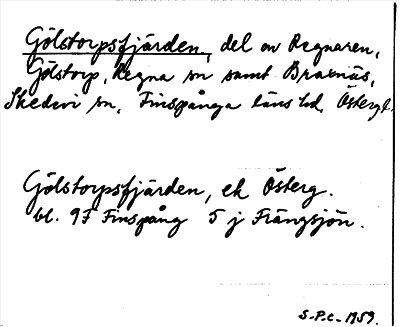 Gölstorpsfjärden, del av Regnaren,
Gölstorp, Regna sn samt Bränäs,
Skedevi sn, Finspånga läns hd, Östergl.
Gölstorpsfjärden, ek Österg.
bl. 9F Finspång 5 j Frängsjön.
S.P.C. 1959.